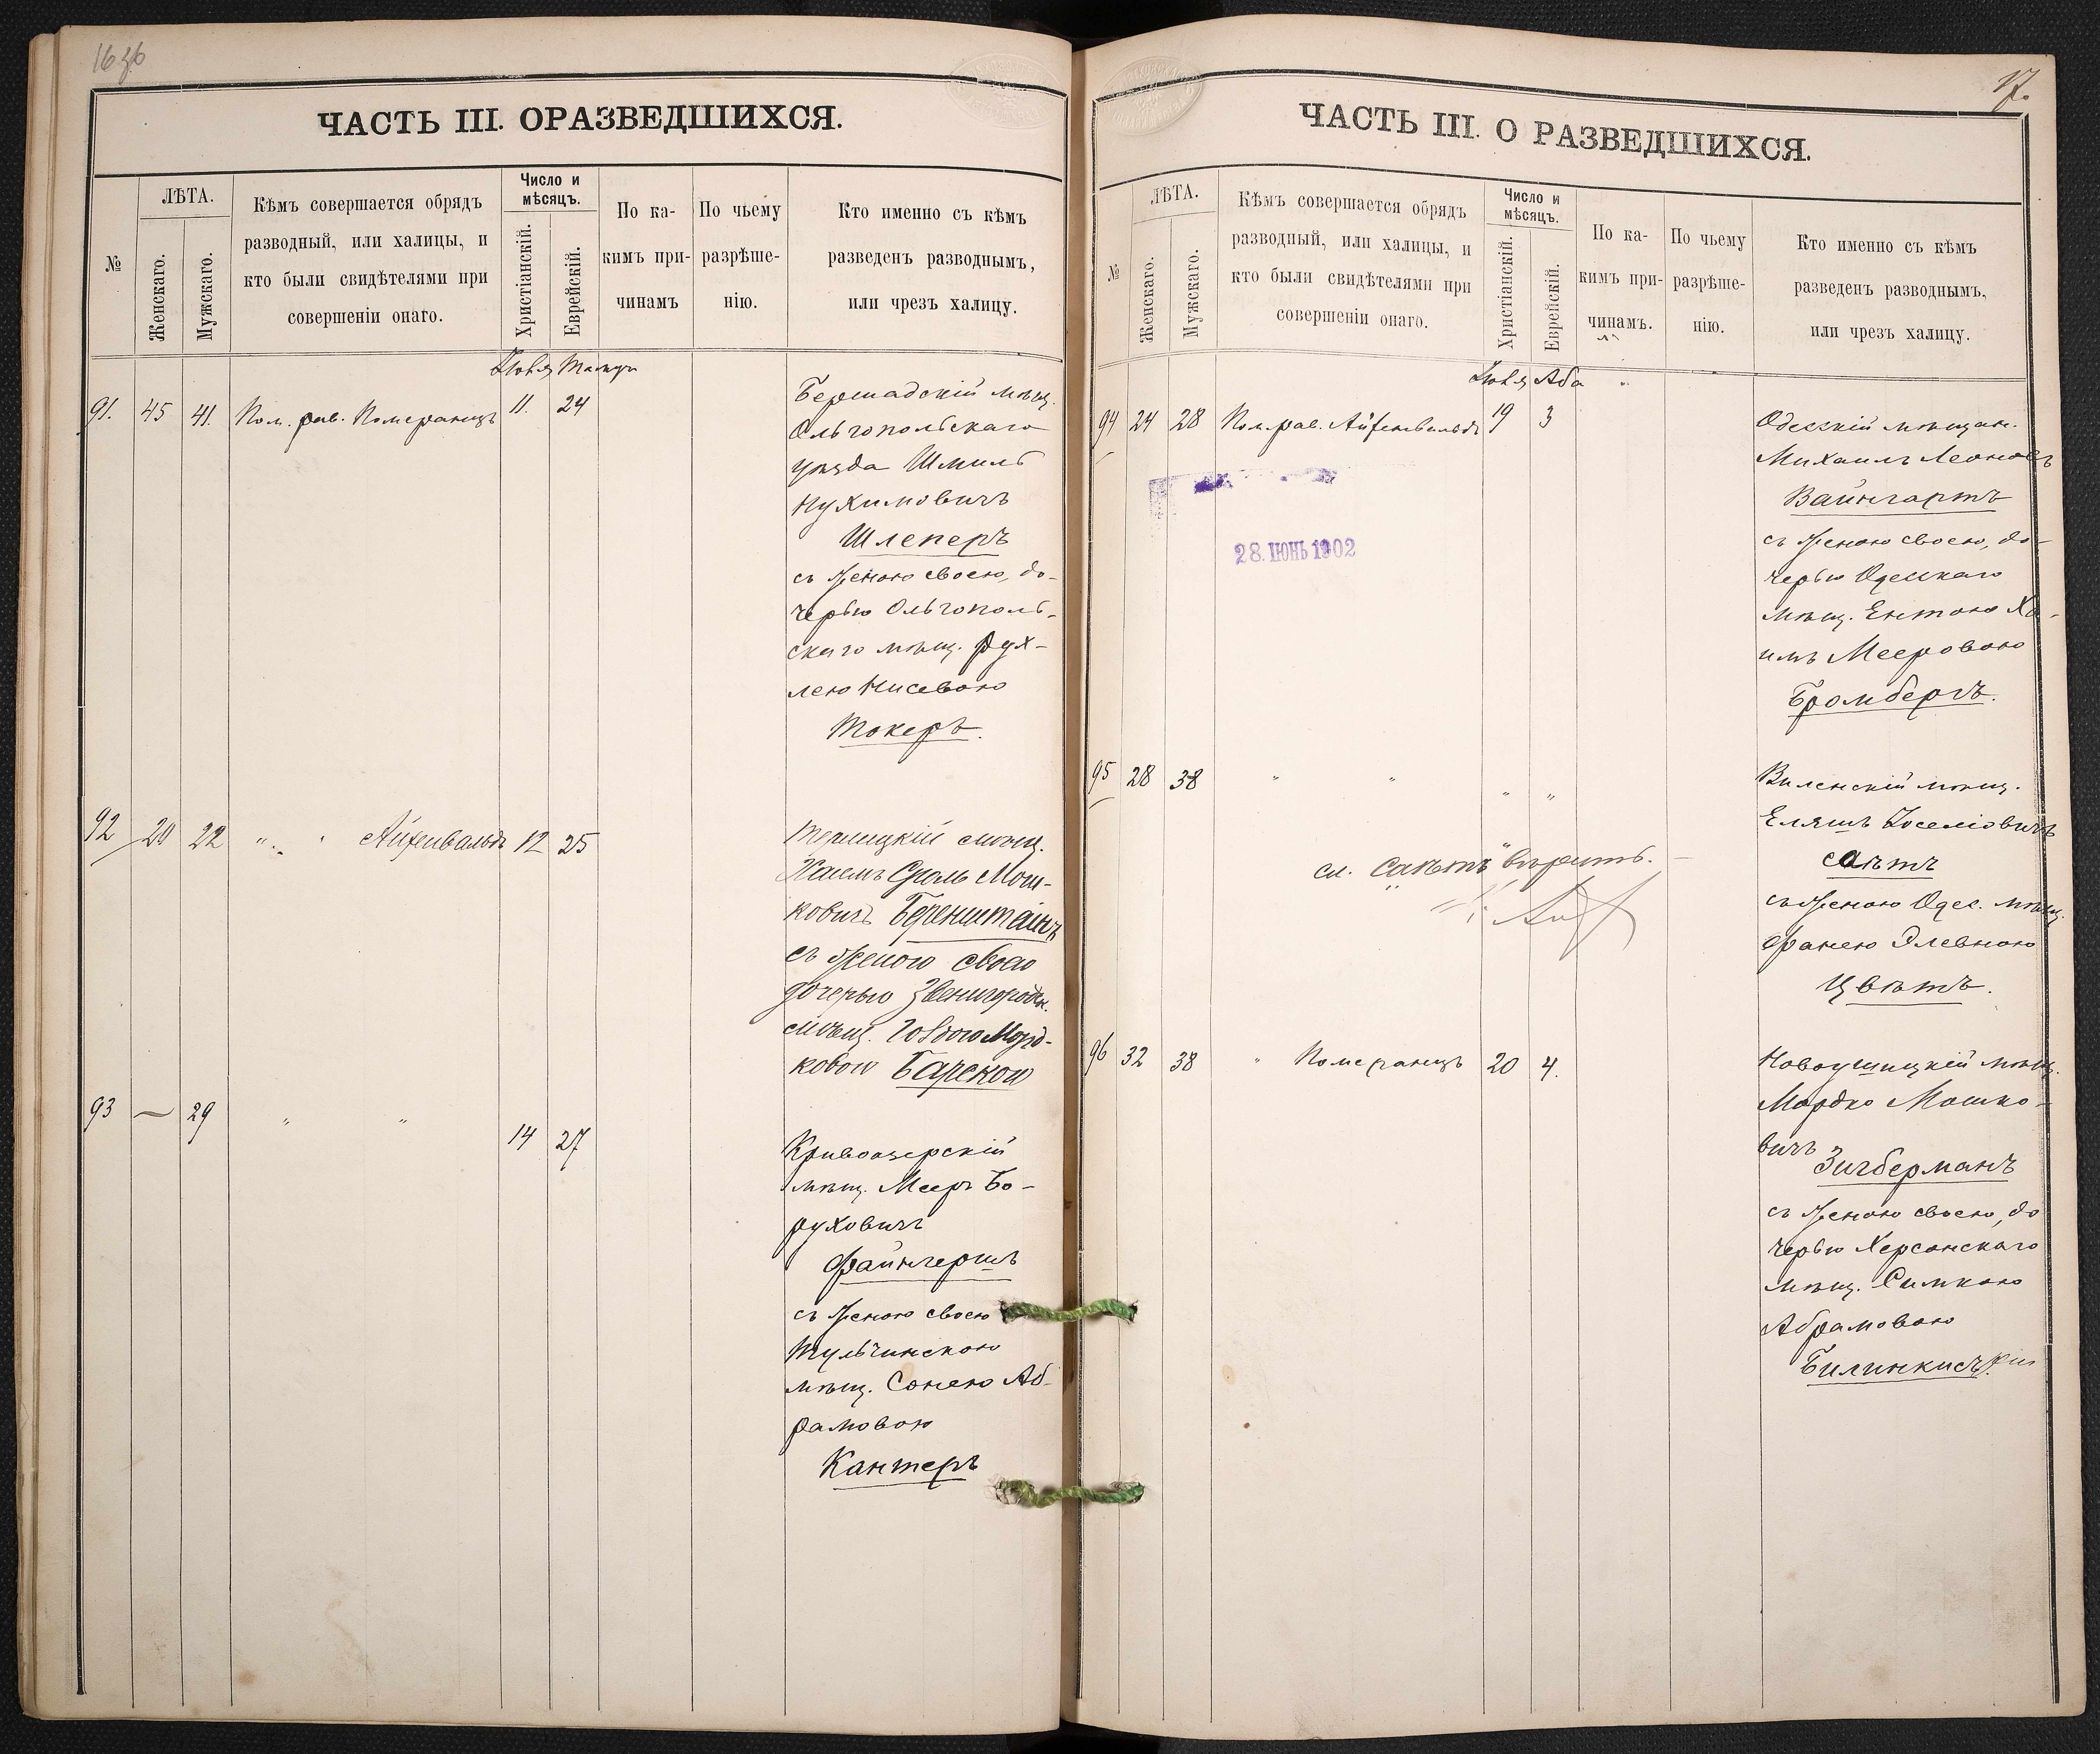 ЧАСТЬ III. О РАЗВЕДШИХСЯ.
№
ЛѢТА.
Женскаго.
Мужскаго.
Кѣмъ совершается обрядъ
разводный, или халицы, и
кто были свидѣтелями при
совершеніи онаго.
Число и
мѣсяцъ.
Христіанскій.
Еврейскій.
По ка-
кимъ при-
чинамъ
По чьему
разрѣше-
нію.
Кто именно съ кѣмъ
разведенъ разводнымъ,
или чрезъ халицу.
Іюля
91. 45 41. Пом. рав. Померанцъ 11. 24
Бершадскій мѣщ.
Ольгопольскаго
уѣзда Шмиль
Нухимовичъ
Шлеперъ
съ женою своею, до-
черью Ольгополь-
скаго мѣщ. Рух-
лею Нисевою
Токеръ.
92 20 22 " " Айхенвальдъ 12 25
мѣщ.
Хаимъ Сроль Мош-
ковичъ Беренштейнъ
съ женою своею
дочерью Звенигородск.
мѣщ. Морд-
ковою Барскою
93 — 29 " " 14 27
Кривоозерскій
мѣщ. Мееръ Бо-
руховичъ
Файнгершъ
съ женою своею
Тульчинскою
мѣщ. Сонею Аб-
рамовою
Кантеръ
17.
ЧАСТЬ III. О РАЗВЕДШИХСЯ.
№
ЛѢТА.
Женскаго.
Мужскаго.
Кѣмъ совершается обрядъ
разводный, или халицы, и
кто были свидѣтелями при
совершеніи онаго.
Число и
мѣсяцъ.
Христіанскій.
Еврейскій.
По ка-
кимъ при-
чинамъ.
По чьему
разрѣше-
нію.
Кто именно съ кѣмъ
разведенъ разводнымъ,
или чрезъ халицу.
Іюля Аба
94 24 28 Пом. рав. Айхенвальдъ 19 3
28. ІЮНЬ 1902
Одесскій мѣщан.
Михаилъ Леоновъ
Вайнгартъ
съ женою своею, до-
черью Одесскаго
мѣщ. Ентою Ха-
имъ Мееровою
Бромбергъ.
95 28 38 " " " "
Виленскій мѣщ.
Еляшъ Іоселіовичъ
Сактъ
съ женою Одес. мѣщ.
Фанею Элевною
Цвѣтъ.
сл. вѣрить.
96 32 38 " Померанцъ 20 4.
Новоушицкій мѣщ.
Мордко Мошко-
вичъ
Зигберманъ
съ женою своею, до
черью Херсонскаго
мѣщ. Симкою
Абрамовою
Билинкисъ